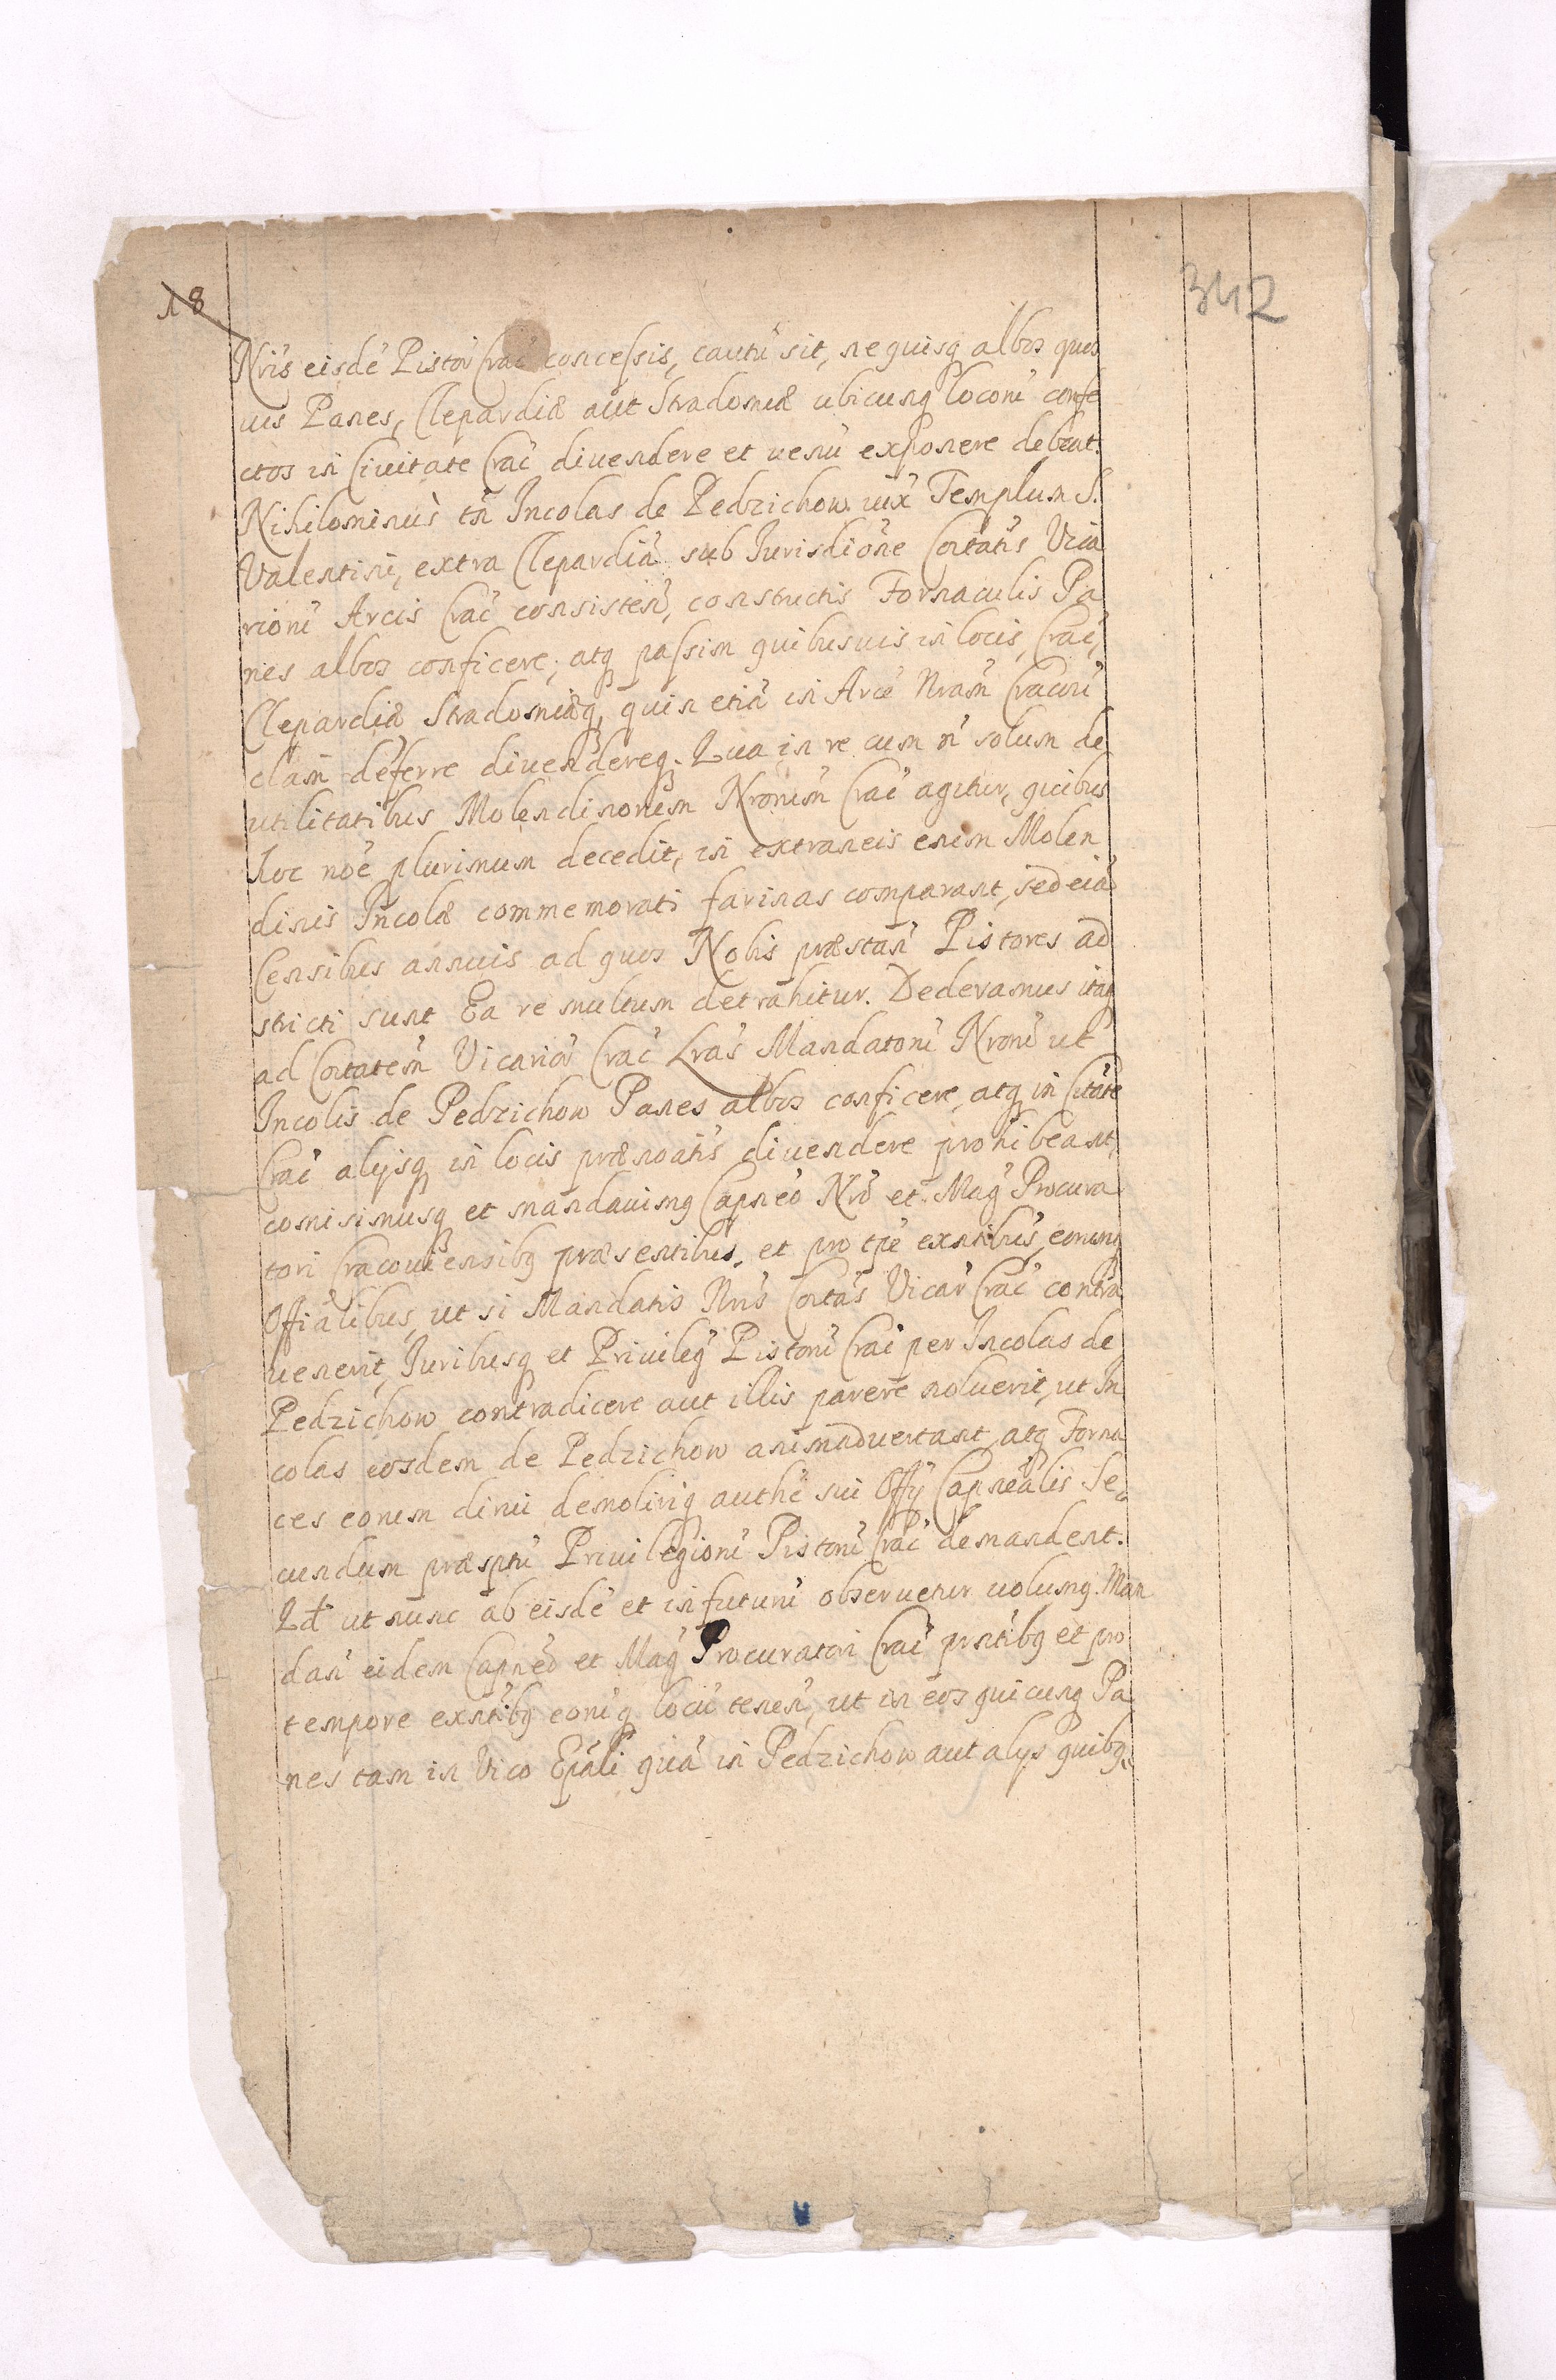 18
342
Nris eisdē Pistor Crac concessis, cautū sit, ne quisq albos quos
uis Panes, Clepardiæ aut Stradomiæ ubicunq locorū confe
ctos in Ciuitate Crac diuendere et uenū exponere debeat.
Nihilominùs tn̄ Incolas de Pedzichow iux Templum S.
Valentini, extra Clepardiā sub Iurisdione Cōtatis Vica
riorū Arcis Crac consisten̄, constructis Fornaculis Pa
nes albos conficere, atq passim quibusuis in locis, Crac,
Clepardiæ Stradomiæq, quin etiā in Arcē Nram̄ Cracou
clam deferre diuendereq. Qua in re cum n̄ solum de
utilitatibus Molendinorum Nrorum Crac agitur, quibus
hoc nōe plurimum decedit, in extraneis enim Molen
dinis Incolæ commemorati farinas comparant, sed eiā
Censibus annuis ad quos Nobis præstan̄ Pistores ad
stricti sunt Ea re multum detrahitur. Dederamus itaq
ad Cōtatem Vicarior Crac Lras Mandatorū Nrorū ut
Incolis de Pedzichow Panes albos conficere, atq in Citate
Crac alijsq in locis prænoatis diuendere prohibeant,
comisimusq et mandauimq Capneo Nro et Mag Procura
tori Cracouiensibq præsentibus, et pro tpe exntibus, eorumq
Offialibus, ut si Mandatis Nris Cōtas Vicar Crac contra
uenerit, Iuribusq et Priuileg Pistorū Crac per Incolas de
Pedzichow contradicere aut illis parere noluerit, ut In
colas eosdem de Pedzichow animaduertant, atq Forna
ces eorum dirui demoliriq authē sui Offij Capnealis Se
cundum præsptū Priuilegiorū Pistorū Crac demandent.
Qd ut nunc ab eisdē et in futurū obseruetur uolumq. Man
dan̄ eidem Capneo et Mag Procuratori Crac prntibq et pro
tempore exntibq eorūq locū tenen̄, ut in eos quicunq Pa
nes tam in Vico Epali quā in Pedzichow aut alijs quibq